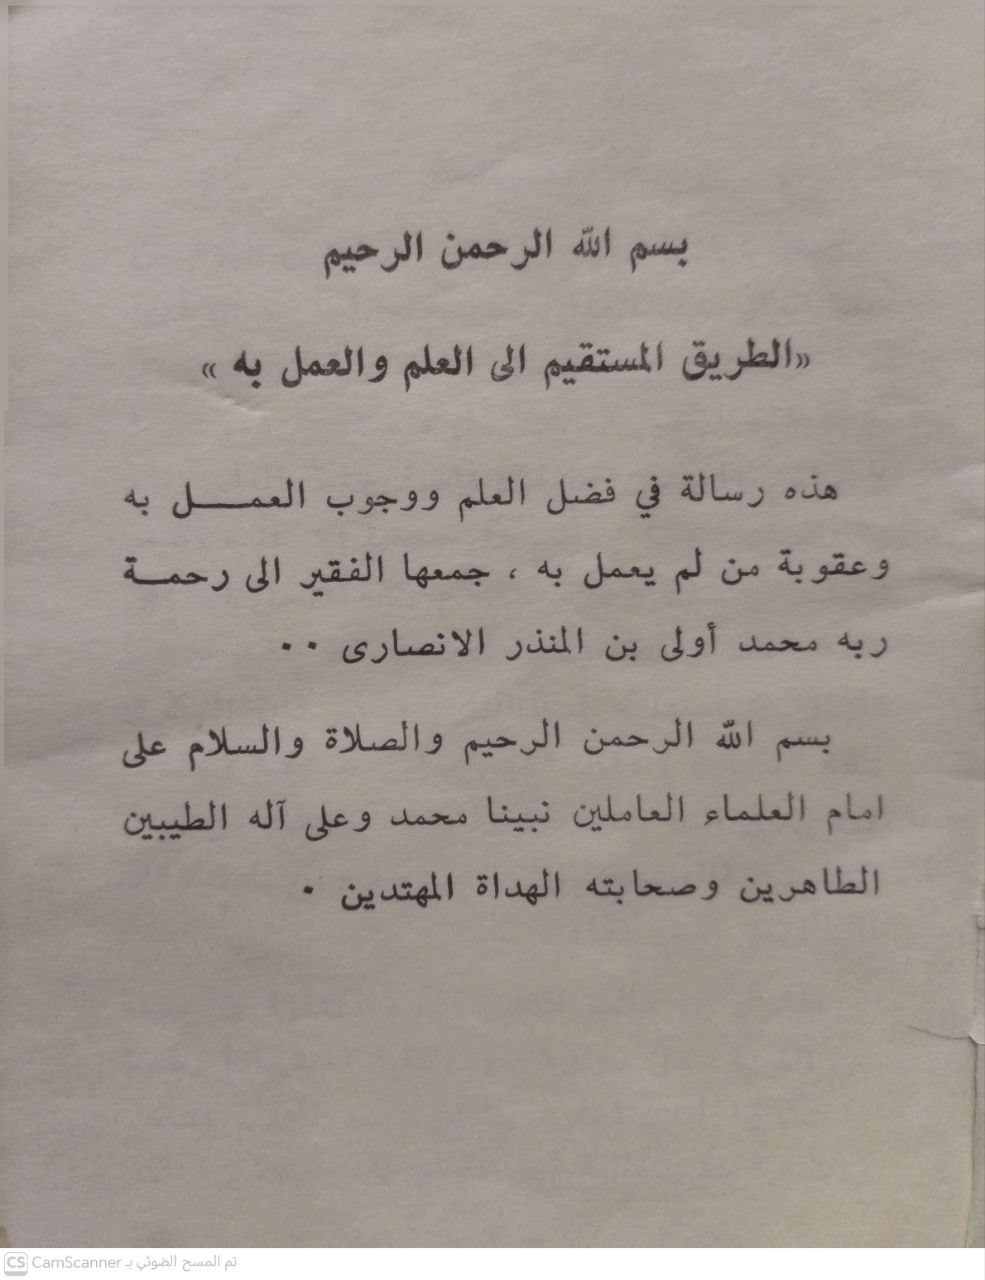 بسم الله الرحمن الرحيم
«الطريق المستقيم الى العلم والعمل به »
هذه رسالة في فضل العلم ووجوب العمـــل به
وعقوبة من لم يعمل به ، جمعها الفقير الى رحمـــة
ربه محمد أولى بن المنذر الانصارى ٠٠
بسم الله الرحمن الرحيم والصلاة والسلام على
امام العلماء العاملين نبينا محمد وعلى آله الطيبين
الطاهرين وصحابته الهداة المهتدين ٠
CS CamScanner تم المسح الضوئي بـ